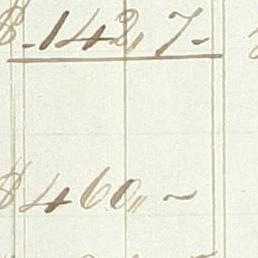 $ 142,, 7-
$ 460,, ~